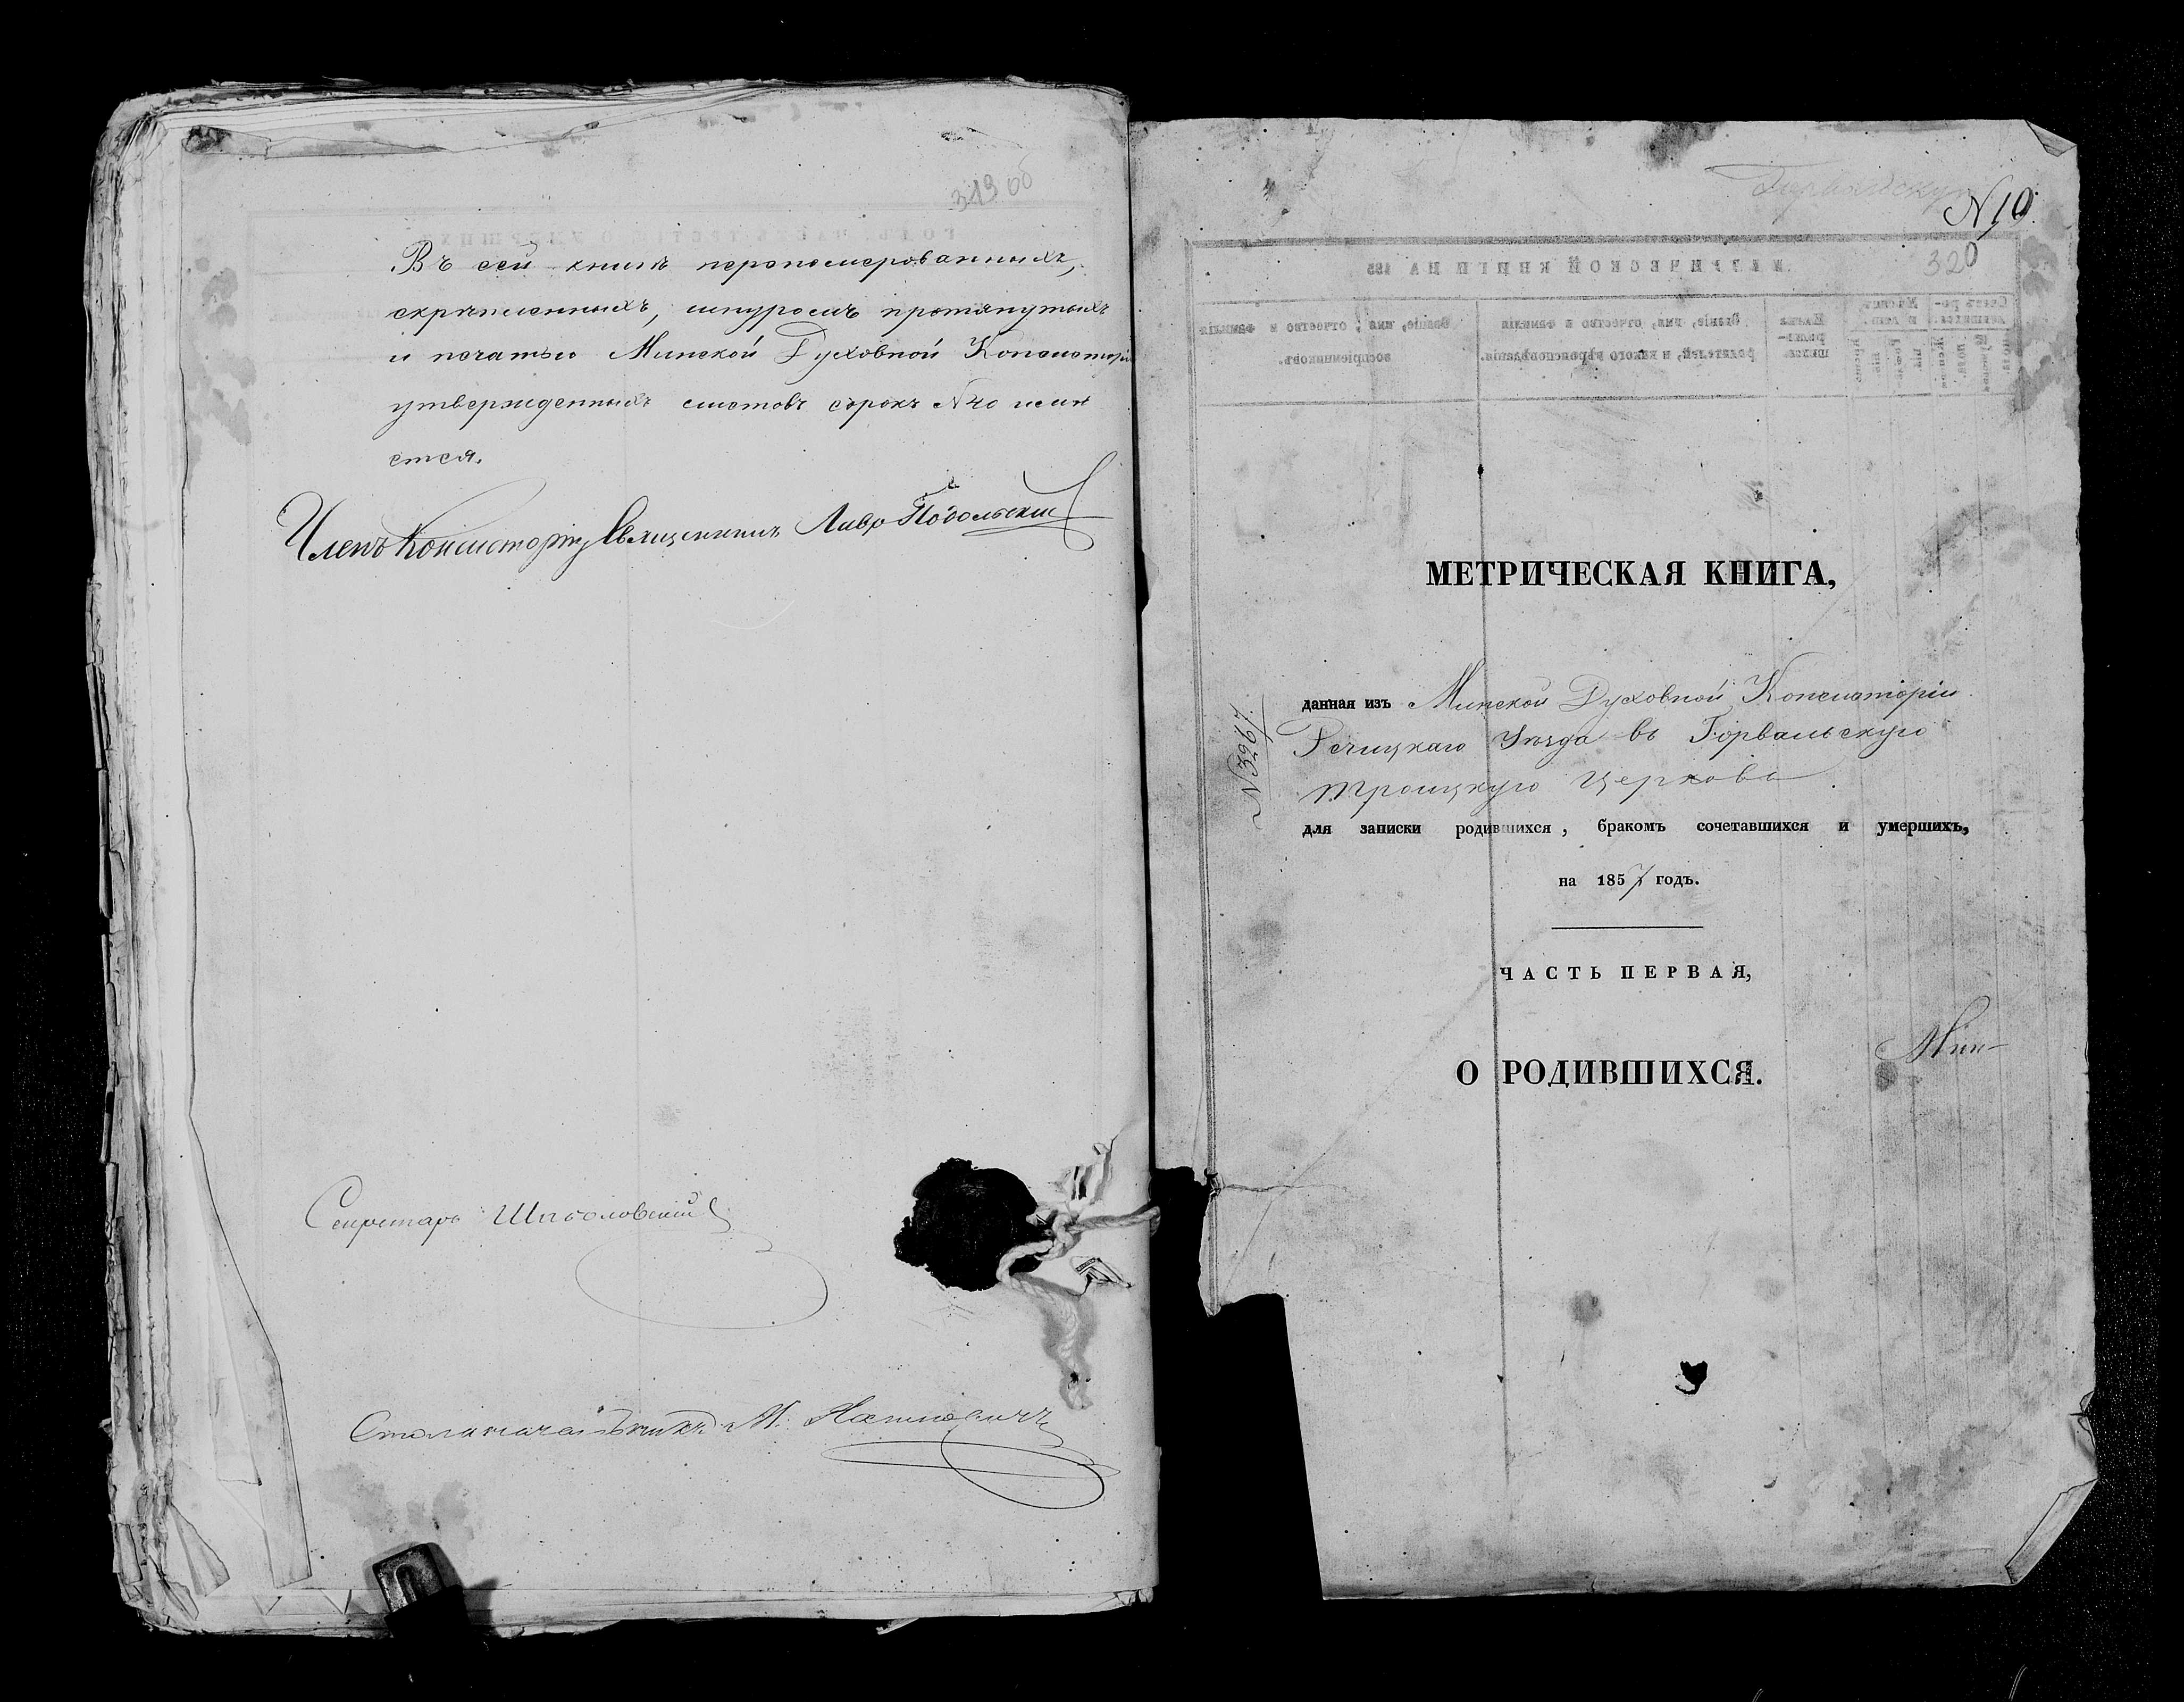 319 об
Въ сей книгѣ перономерованныхъ,
скрѣпленныхъ, шнуромъ протянутыхъ
и печатью Минской Духовной Консисторіи
утвержденныхъ листовъ сорокъ N 40 имѣ
ется.
Членъ Консисторіи Священникъ
Секретарь
Столоначальникъ М.
N 19.
320
МЕТРИЧЕСКАЯ КНИГА,
N 3267.
данная изъ Минской Духовной Консисторіи
Речицкаго Уѣзда въ Горвальскую
Троицкую церковь
для записки родившихся, бракомъ сочетавшихся и умершихъ,
на 1857 годъ.
ЧАСТЬ ПЕРВАЯ,
О РОДИВШИХСЯ.
Мин-